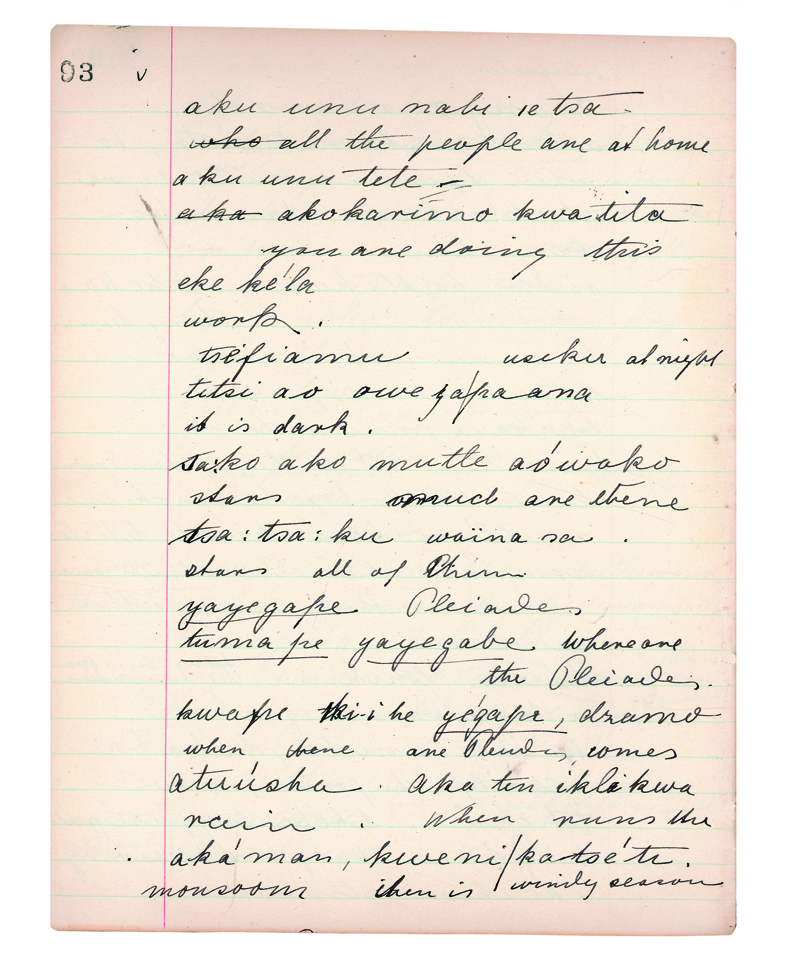 93 v
aku unu nabi ie tsa -
who all the people are at home
aku unu tete -
aka akokarimo kwa tita
you are doing this
eke kéla
work .
tsefiamu useku at night
titsi ao owe yapa ana
it is dark .
sa:ko ako mutte aówoko
stars much are there
tsa : tsa : ku waïna sa .
stars all of them
yayegape Pleiades
tuma pe yayegabe. where are
the Pleiades.
kwape i-i he yégape, dzamo
when there are Pleiades, comes
atuúsha . aka ten iklikwa
rain . when runs the
. aká man, kweni/katsé ti.
monsoon then is windy season